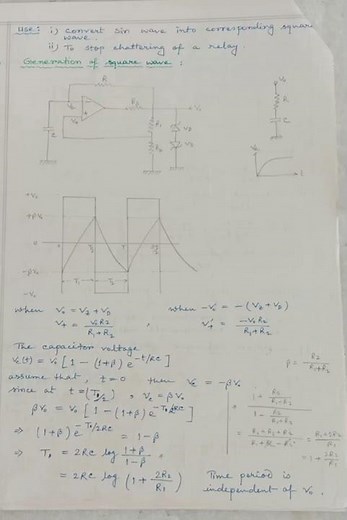 Use: i) Convert sin wave into corresponding square
wave.
ii) To stop chattering of a relay.
Generation of square wave :
R
V₀
R
C
R₁
R₂
+V₀
+βV₀
0
-βV₀
-V₀
T₁
T₂
when V₀ = V_Z + V_D , when -V₀ = -(V_Z + V_D)
V₊ = V₀R₂/(R₁+R₂) , V₊ = -V₀R₂/(R₁+R₂)
The capacitor voltage
V_c(t) = V₀ [1 - (1+β) e^(-t/RC)]
assume that, t = 0 then V_c = -βV₀
since at t = (T₀/2) , V_c = βV₀
βV₀ = V₀ [1 - (1+β) e^(-T₀/2RC)]
⇒ (1+β) e^(-T₀/2RC) = 1-β
⇒ T₀ = 2RC log (1+β)/(1-β)
= 2RC log (1 + 2R₂/R₁)
β = R₂/(R₁+R₂)
= (1 + R₂/(R₁+R₂))/(1 - R₂/(R₁+R₂))
= 1 + 2R₂/R₁
Time period is
independent of V₀.